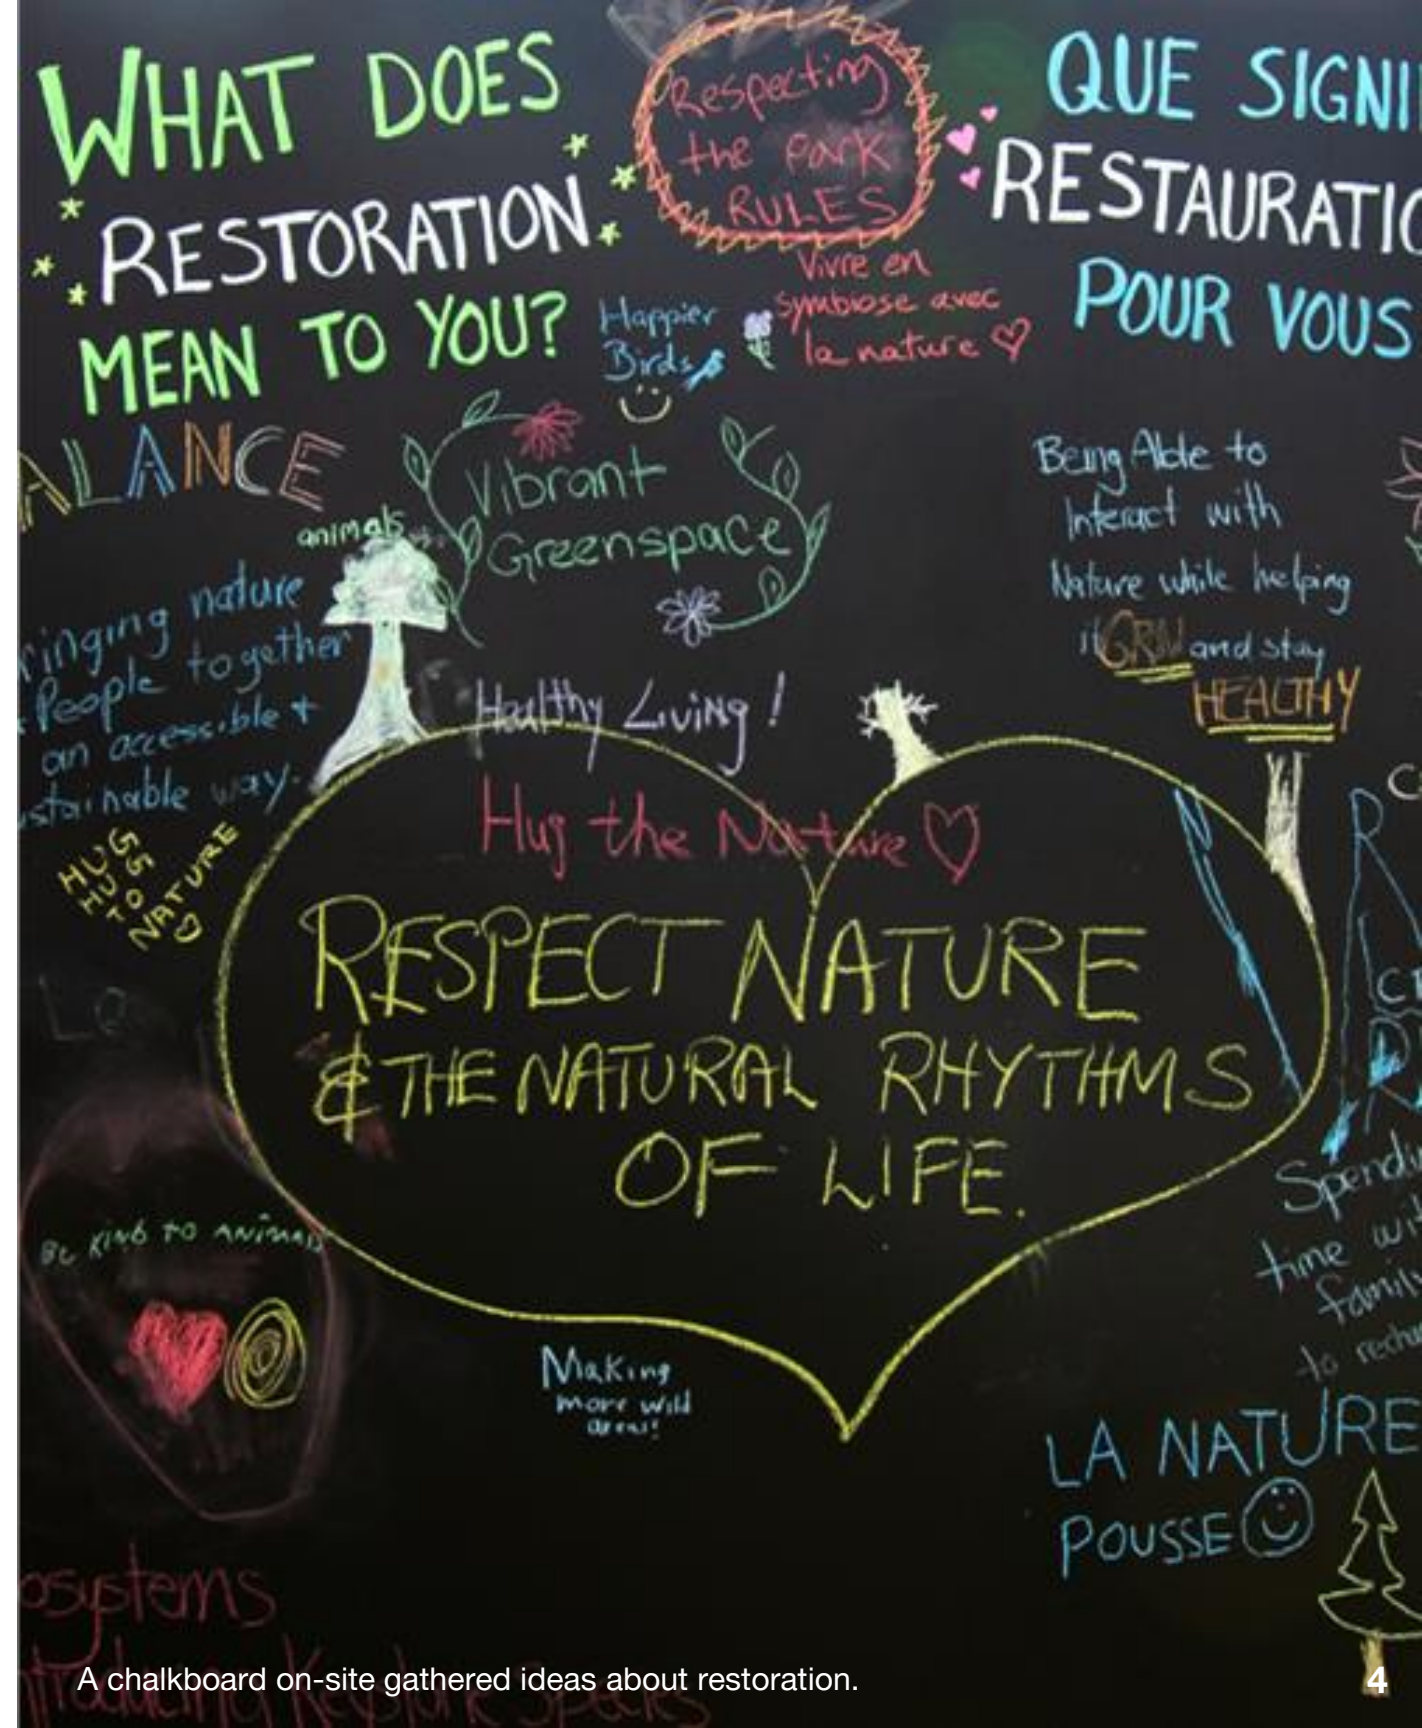 WHAT DOES
RESTORATION
MEAN TO YOU?
Respecting
the park
RULES
QUE SIGNI
RESTAURATIO
POUR VOUS
Vivre en
symbiose avec
la nature
Happier
Birds
ALANCE
animals
Vibrant
Greenspace
Being Able to
Interact with
Nature while helping
it and stay
HEALTHY
ringing nature
People together
an accessible +
stainable way.
Healthy Living!
Hug the Nature
HUGS
NATURE
RESPECT NATURE
& THE NATURAL RHYTHMS
OF LIFE.
Lo
BE KIND TO ANIMALS
Making
more wild
areas!
Spendin
time wit
family
to recha
LA NATURE
POUSSE
osystems
ntroducing Keystone Species
A chalkboard on-site gathered ideas about restoration.
4